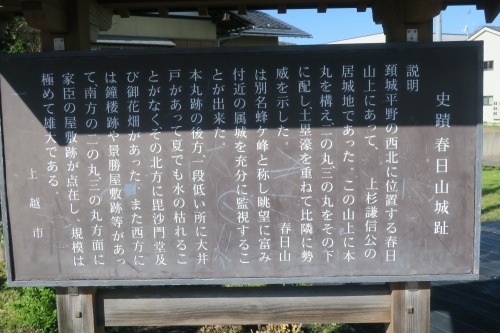 史蹟春日山城趾
説明
頚城平野の西北に位置する春日
山上にあって、上杉謙信公の
居城地であった。この山上に本
丸を構え二の丸三の丸をその下
に配し土塁濠を重ねて比隣に勢
威を示した。　春日山
は別名蜂ケ峰と称し眺望に富み
付近の属城を充分に監視するこ
とが出来た。
本丸跡の後方一段低い所に大井
戸があって夏でも水の枯れるこ
とがなくその北方に毘沙門堂及
び御花畑があった。また西方に
は鐘楼跡や景勝屋敷跡等があっ
て、南方の二の丸三の丸方面に
家臣の屋敷跡が点在し、規模は
極めて雄大である。
上越市